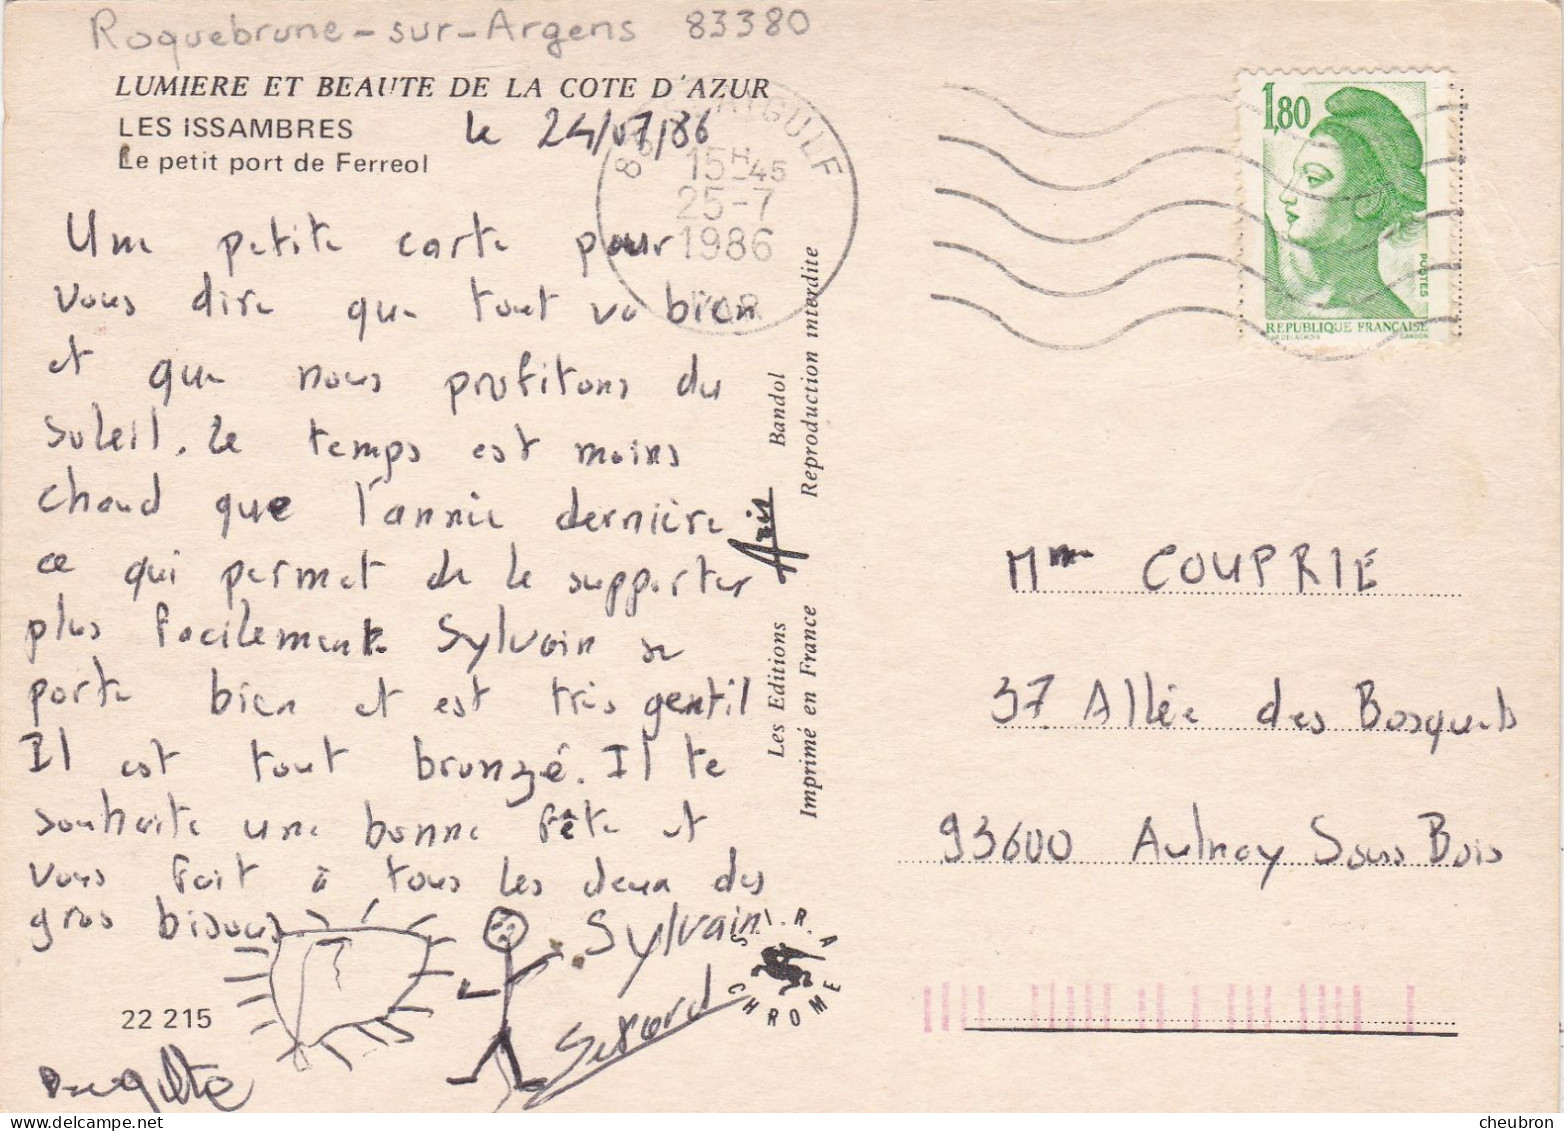 Roquebrune-sur-Argens 83380
LUMIERE ET BEAUTE DE LA COTE D'AZUR
LES ISSAMBRES
le 24/07/86
Le petit port de Ferreol
Une petite carte pour
vous dire que tout va bien
et que nous profitons du
soleil. Le temps est moins
chaud que l'année dernière
ce qui permet de le supporter
plus facilement Sylvain se
porte bien et est très gentil
Il est tout bronzé. Il te
souhaite une bonne fête et
vous fait à tous les deux des
gros bisous
Sylvain
22 215
Les Editions Aris Bandol
Imprimé en France Reproduction interdite
S.I.R.A
CHROME
AYGULF
15H45
25-7
1986
VAR
1,80
POSTES
REPUBLIQUE FRANÇAISE
D'AP. DELACROIX GANDON
Mme COUPRIE
37 Allée des Bosquets
93600 Aulnay Sous Bois
cheubron